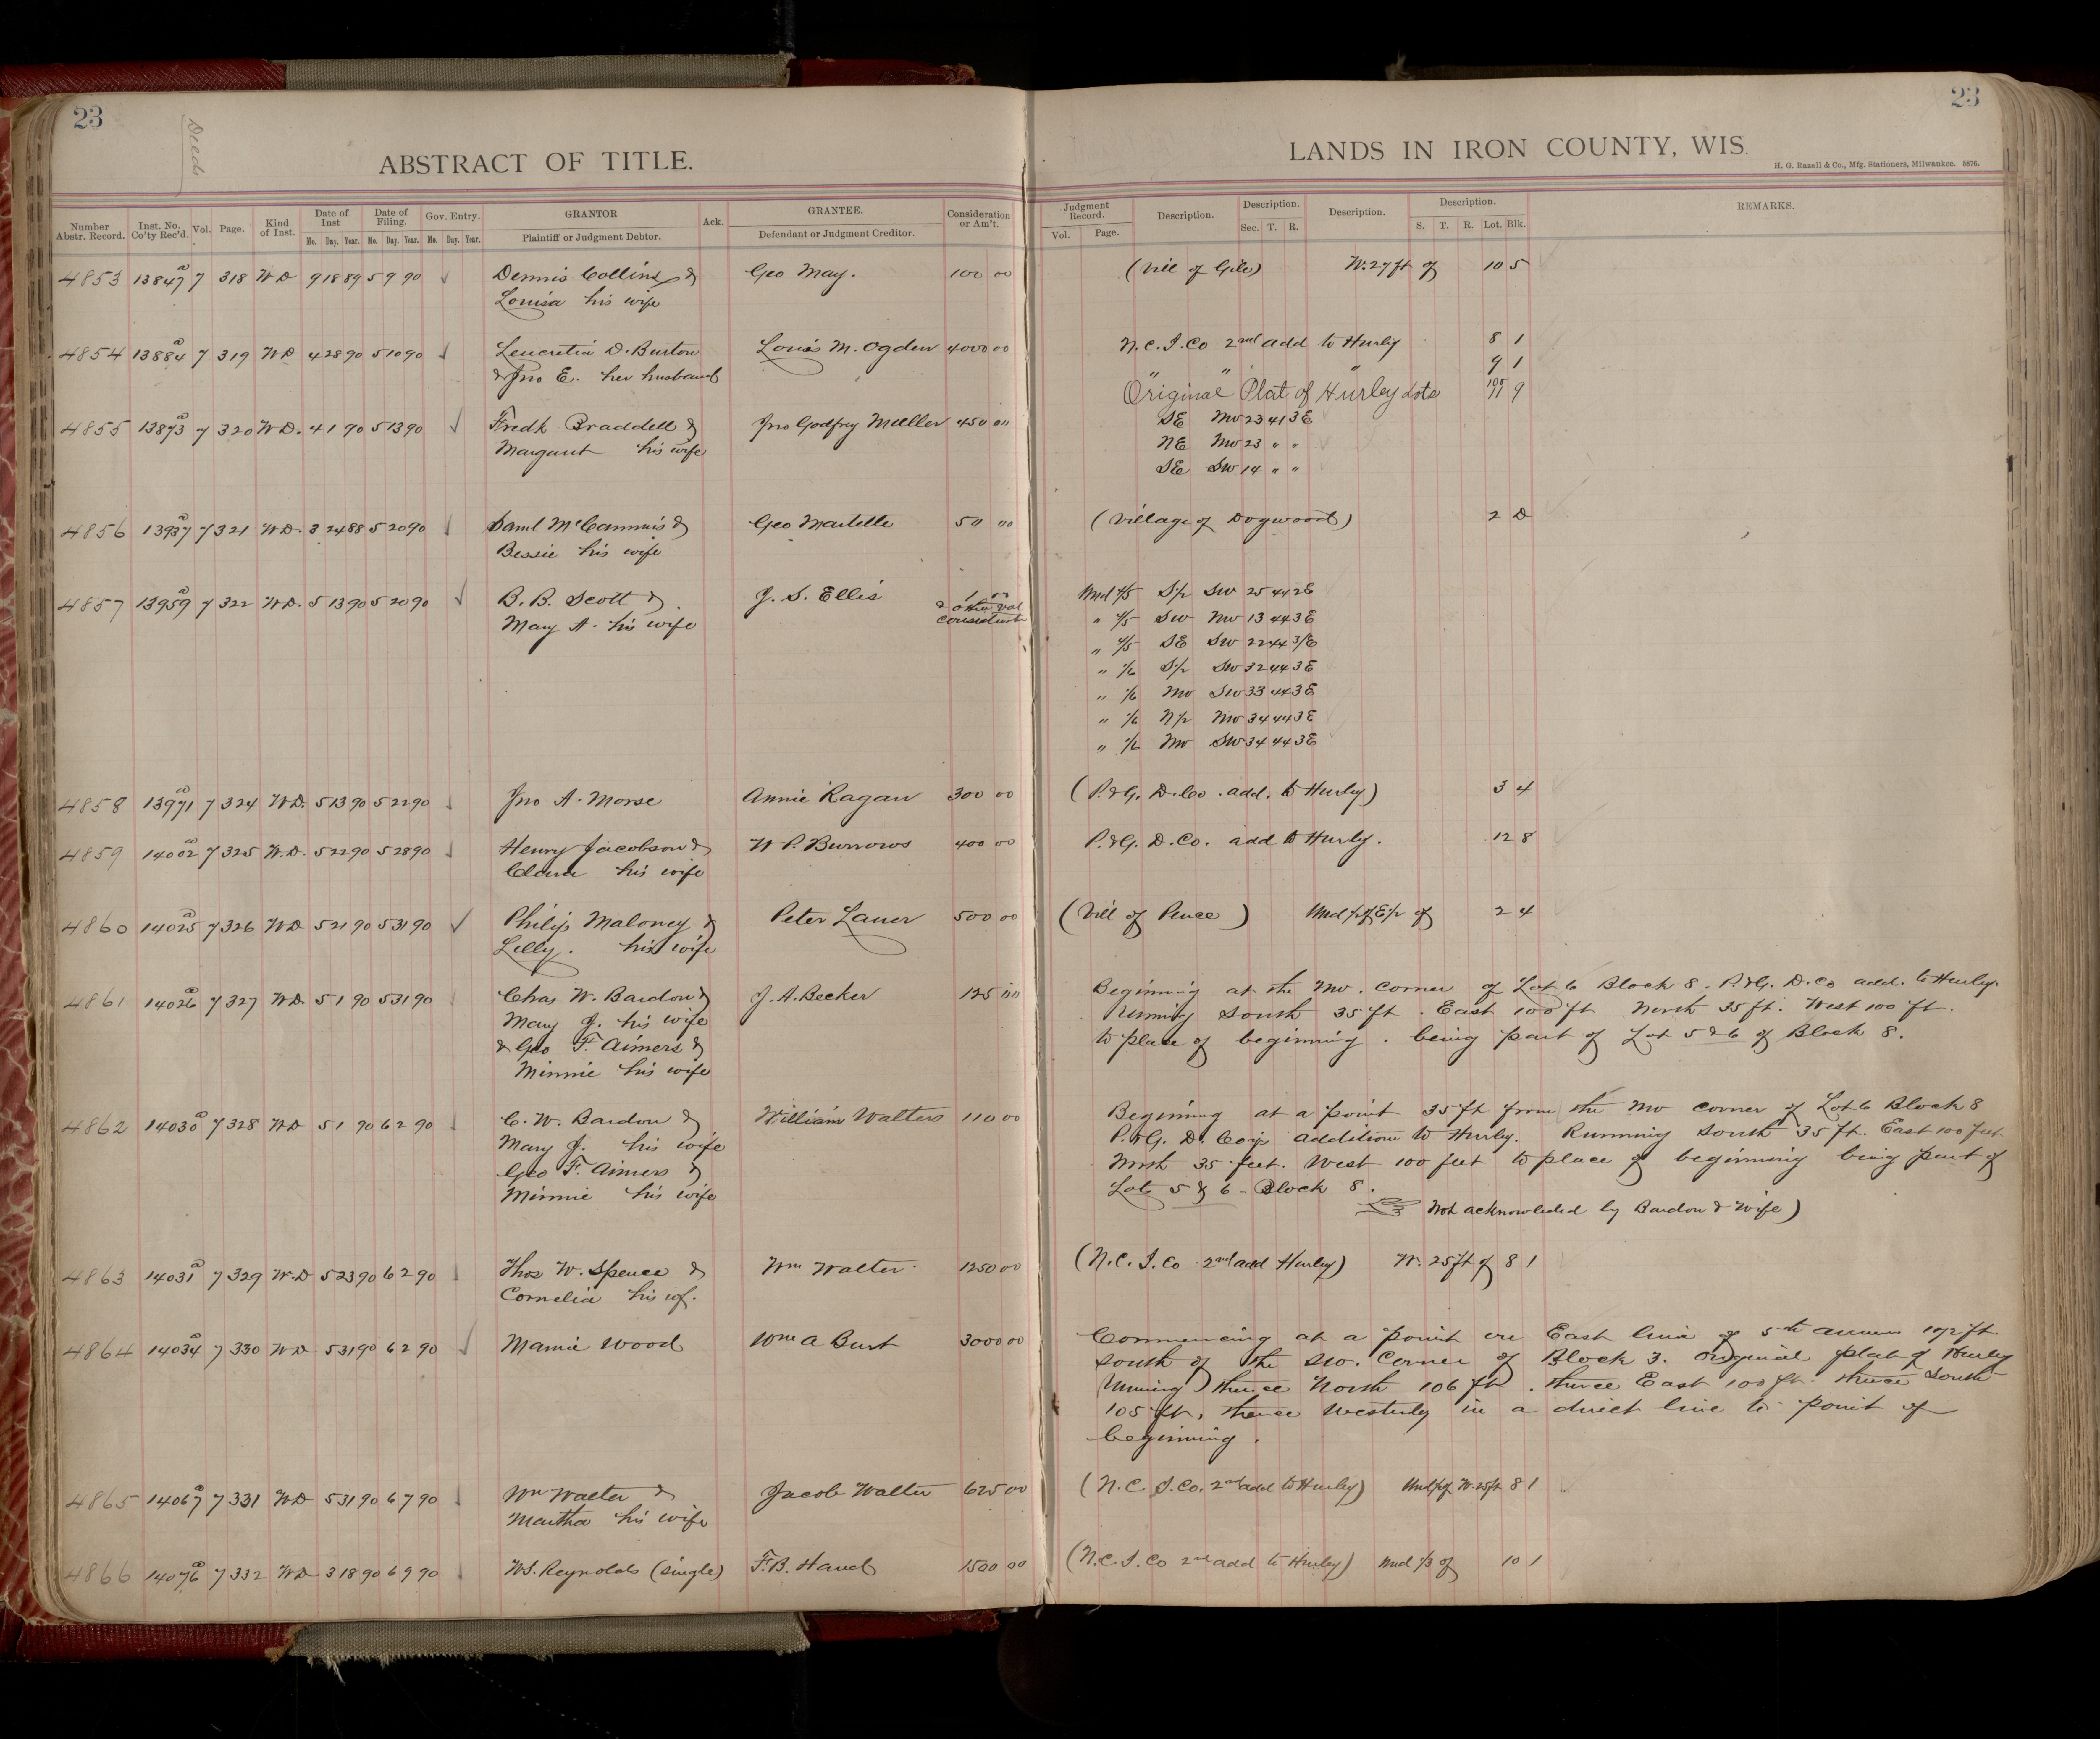 23
Deeds
ABSTRACT OF TITLE.
LANDS IN IRON COUNTY, WIS.
23
H. G. Razall & Co., Mfg. Stationers, Milwaukee. 5876.
Number Abstr. Record. Inst. No. Co'ty Rec'd. Vol. Page. Kind of Inst. Date of Inst Mo. Day. Year. Date of Filing. Mo. Day. Year. Gov. Entry. Mo. Day. Year. GRANTOR Plaintiff or Judgment Debtor. Ack. GRANTEE. Defendant or Judgment Creditor. Consideration or Am't. Judgment Record. Vol. Page. Description. Description. Sec. T. R. Description. Description. S. T. R. Lot. Blk. REMARKS.
4853 13847a 7 318 WD 9 18 89 5 9 90 ✓ Dennis Collins & Geo May. 100 00 (Vill of Gile) W. 27 ft of 10 5
Louisa his wife
4854 13884a 7 319 WD 4 28 90 5 10 90 ✓ Leucretia D. Burton Louis M. Ogden 4000 00 N.C.I.Co 2nd add to Hurley 8 1
& Jno E. her husband " " 9 1
Original Plat of Hurley Lots 9
4855 13873a 7 320 W.D. 4 1 90 5 13 90 ✓ Fredk Braddell & Jno Godfrey Mueller 450 00 SE NW 23 41 3E
Margaret his wife NE NW 23 " "
SE SW 14 " "
4856 13937a 7 321 W.D. 3 24 88 5 20 90 ✓ Saml McCammis & Geo Martelle 50 00 (Village of Dogwood) 2 D
Bessie his wife
4857 13959a 7 322 W.D. 5 13 90 5 20 90 ✓ B. B. Scott & J. S. Ellis 1 00 Und 4/5 S½ SW 25 44 2E
Mary A. his wife & other val considerat " 4/5 SW NW 13 44 3E
" 4/5 SE SW 22 44 3E
" 1/6 S½ SW 32 44 3E
" 1/6 NW SW 33 44 3E
" 1/6 N½ NW 34 44 3E
" 1/6 NW SW 34 44 3E
4858 13971a 7 324 W.D. 5 13 90 5 22 90 ✓ Jno A. Morse Annie Ragan 300 00 (P.&G. D.Co. add. to Hurley) 3 4
4859 14002a 7 325 W.D. 5 22 90 5 28 90 ✓ Henry Jacobson & W P. Burrows 400 00 P.&G. D.Co. add to Hurley. 12 8
Clara his wife
4860 14025a 7 326 WD 5 21 90 5 31 90 ✓ Philip Maloney & Peter Lauer 500 00 (Vill of Pence) Und ½ of E½ of 2 4
Lilly. his wife
4861 14026a 7 327 WD. 5 1 90 5 31 90 ✓ Chas W. Bardon & J. A. Becker 125 00 Beginning at the NW. corner of Lot 6 Block 8. P.&G. D.Co add. to Hurley.
Mary J. his wife running South 35 ft. East 100 ft North 35 ft. West 100 ft.
& Geo F. Aimers & to place of beginning. being part of Lot 5 & 6 of Block 8.
Minnie his wife
4862 14030a 7 328 WD 5 1 90 6 2 90 ✓ C. W. Bardon & William Walters 110 00 Beginning at a point 35 ft from the NW corner of Lot 6 Block 8
Mary J. his wife P.&G. D. Co's addition to Hurley. Running South 35 ft. East 100 feet
Geo F. Aimers & North 35 feet. West 100 feet to place of beginning being part of
Minnie his wife Lots 5 & 6 - Block 8.
Not acknowleded by Bardon & Wife)
4863 14031a 7 329 W.D 5 23 90 6 2 90 ✓ Thos W. Spence & Wm Walter 1250 00 (N.C.I.Co 2nd add Hurley) W. 25 ft of 8 1
Cornelia his wf.
4864 14034a 7 330 WD 5 31 90 6 2 90 ✓ Mamie Wood Wm A Burt 3000 00 Commencing at a point on East line of 5th avenue 102 ft.
South of the SW. corner of Block 3. original plat of Hurley
running thence North 106 ft. thence East 100 ft. thence South
105 ft, thence westerly in a direct line to point of
beginning.
4865 14067a 7 331 WD 5 31 90 6 7 90 ✓ Wm Walter & Jacob Walter 625 00 (N.C.I.Co. 2nd add to Hurley) Und ½ of W. 25 ft 8 1
Martha his wife
4866 14076a 7 332 WD 3 18 90 6 9 90 ✓ W.S. Reynolds (single) F.B. Hand 1500 00 (N.C.I.Co 2nd add to Hurley) Und 1/3 of 10 1